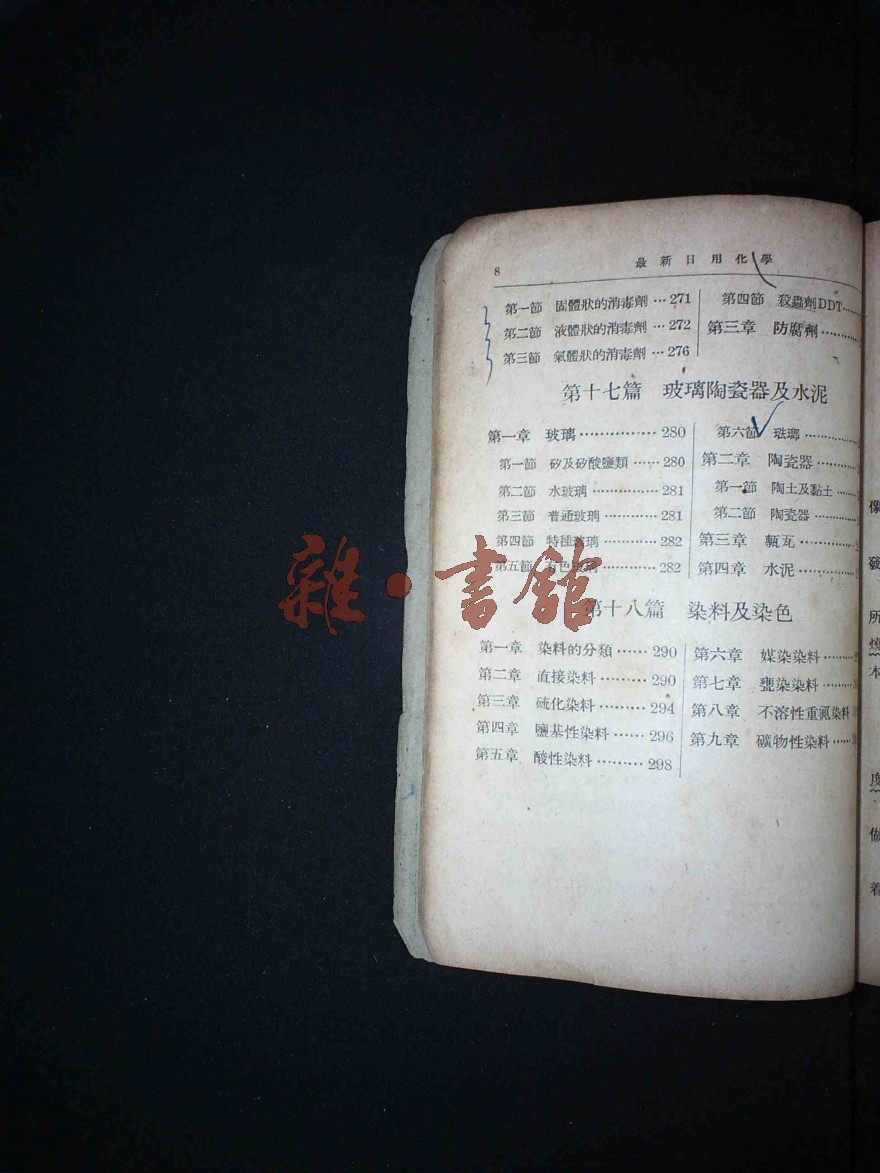 8
最新日用化學
第一節 固體狀的消毒劑…271
第二節 液體狀的消毒劑…272
第三節 氣體狀的消毒劑…276
第四節 殺蟲劑DDT……
第三章 防腐劑………
第十七篇 玻璃陶瓷器及水泥
第一章 玻璃……………280
第一節 矽及矽酸鹽類……280
第二節 水玻璃……………281
第三節 普通玻璃…………281
第四節 特種玻璃…………282
第五節 有色玻璃…………282
第六節 珐瑯…………
第二章 陶瓷器………
第一節 陶土及黏土……
第二節 陶瓷器………
第三章 甎瓦………
第四章 水泥………
第十八篇 染料及染色
第一章 染料的分類……290
第二章 直接染料………290
第三章 硫化染料………294
第四章 鹽基性染料……296
第五章 酸性染料………298
第六章 媒染染料………
第七章 甕染染料………
第八章 不溶性重氮染料
第九章 礦物性染料……
雜·書館
像
發
所
燒
本
度
做
着